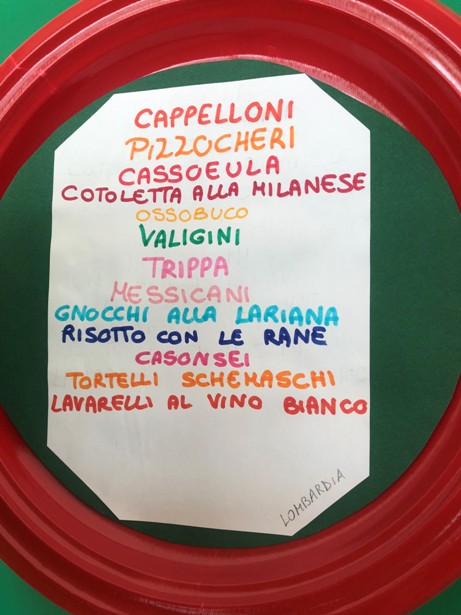 CAPPELLONI
PIZZOCHERI
CASSOEULA
COTOLETTA ALLA MILANESE
OSSOBUCO
VALIGINI
TRIPPA
MESSICANI
GNOCCHI ALLA LARIANA
RISOTTO CON LE RANE
CASONSEI
TORTELLI SCHEMASCHI
LAVARELLI AL VINO BIANCO
LOMBARDIA